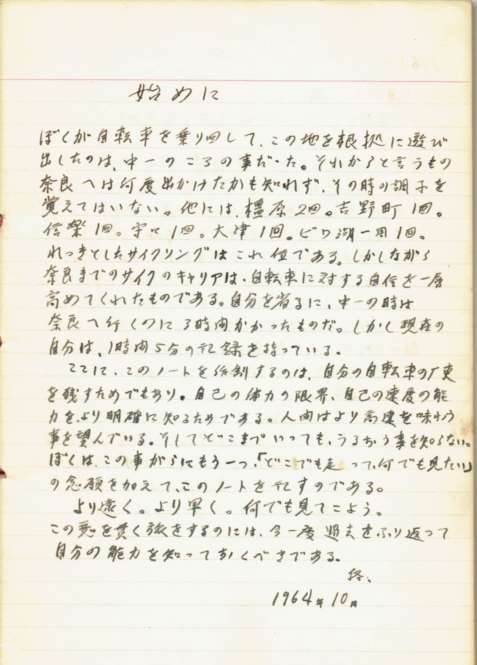 始めに
ぼくが自転車を乗り回して、この地を根拠に遊び
出したのは、中一のころの事だった。それからと言うもの
奈良へは何度出かけたかも知れず、その時の調子を
覚えてはいない。他には、橿原2回。吉野町1回。
信楽1回。守口1回。大津1回。ビワ湖一周1回。
れっきとしたサイクリングはこれ位である。しかしながら
奈良までのサイクのキャリアは、自転車に対する自信を一層
高めてくれたものである。自分を省るに、中一の時は
奈良へ行くのに3時間かかったものだ。しかし現在の
自分は、1時間5分の記録を持っている。
ここに、このノートを作製するのは、自分の自転車の歴史
を残すためでもあり。自己の体力の限界、自己の速度の能
力を、より明確に知るためである。人間はより高速を味わう
事を望んでいる。そしてどこまでいっても、うるおう事を知らない。
ぼくは、この事がらにもう一つ、「どこでも走って、何でも見たい」
の念願を加えて、このノートを記すのである。
より遠く。より早く。何でも見てこよう。
この をするのには、今一度過去をふり返って
自分の能力を知っておくべきである。
終、
1964年10月